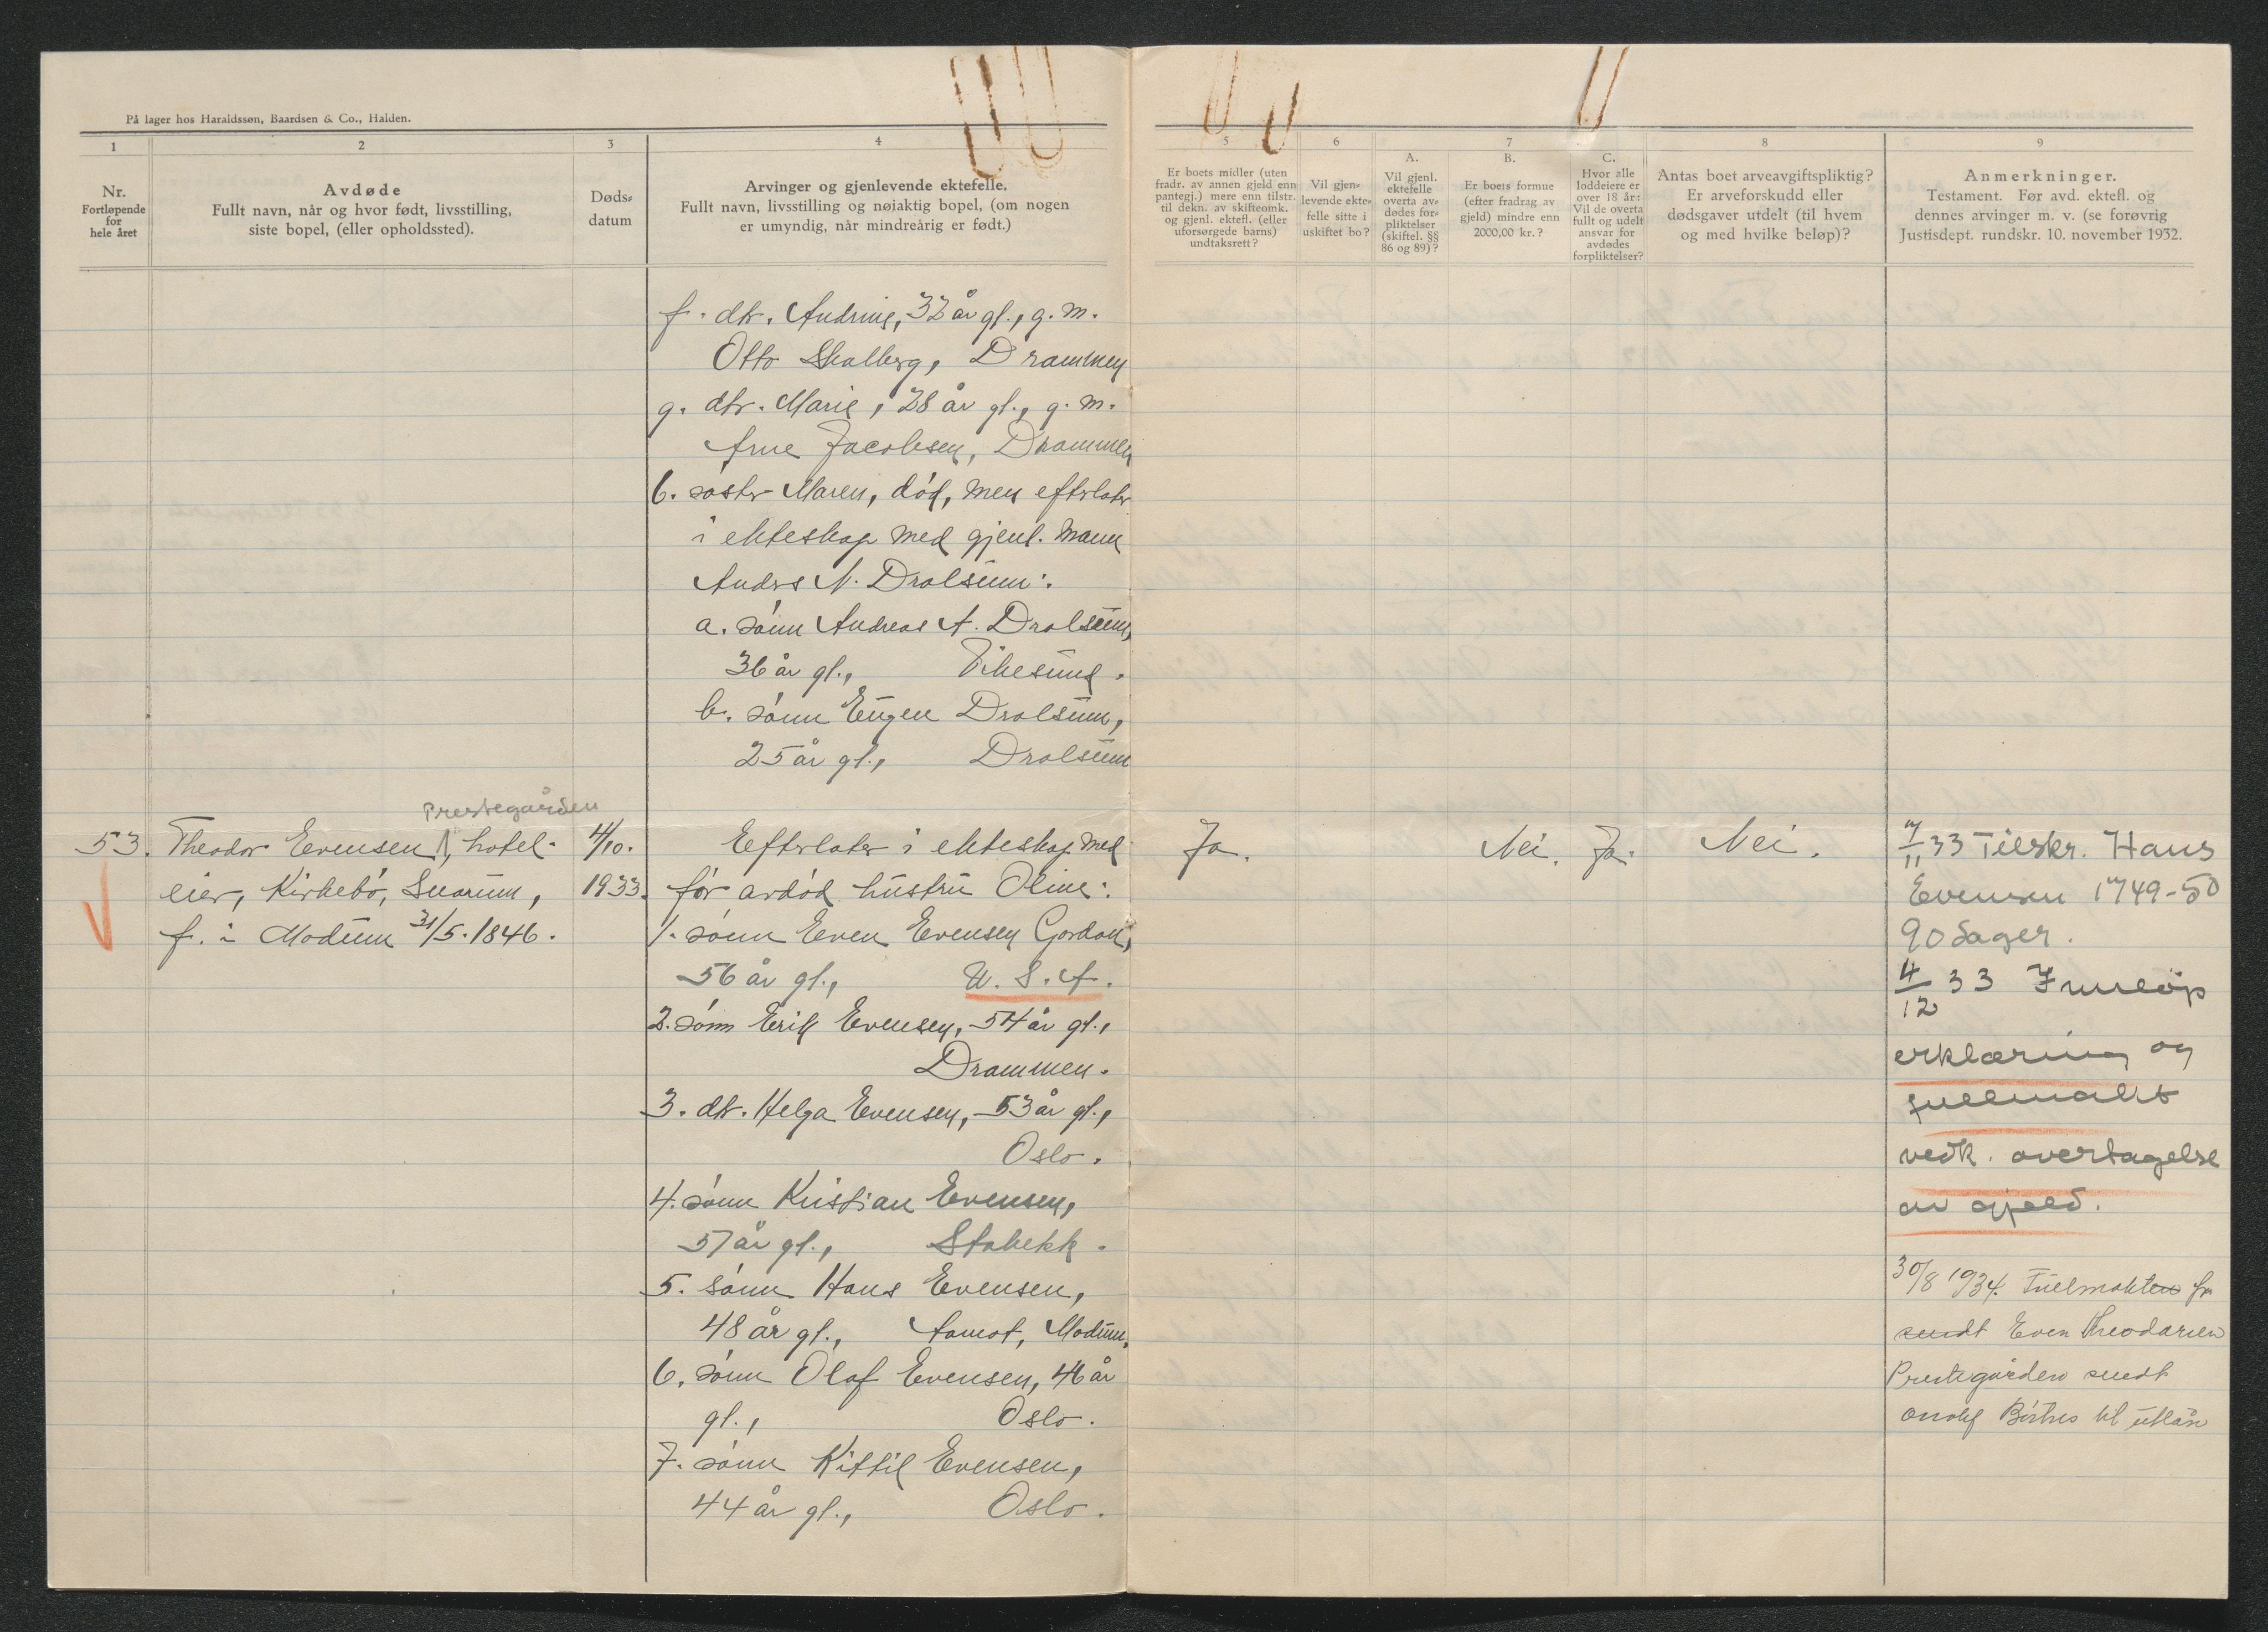 På lager hos Haraldssøn, Baardsen & Co., Halden.
1
2
3
4
Nr.
Fortløpende
for
hele året
Avdøde
Fullt navn, når og hvor født, livsstilling,
siste bopel, (eller opholdssted).
Døds-
datum
Arvinger og gjenlevende ektefelle.
Fullt navn, livsstilling og nøiaktig bopel, (om nogen
er umyndig, når mindreårig er født.)
f. dtr. Andrine, 32 år gl., g. m.
Otto Skalberg, Drammen
g. dtr. Marie, 28 år gl., g. m.
Arne Jacobsen, Drammen
6. søster Maren, død, men efterlater
i ekteskap med gjenl. mann
Anders N. Drolsum:
a. sønn Andreas A. Drolsum,
36 år gl., Vikesund.
b. sønn Eugen Drolsum,
25 år gl., Drolsum
Prestegården
53. Theodor Evensen, hotel-
eier, Kirkebø, Snarum,
f. i Modum 31/5. 1846.
4/10.
1933.
Efterlater i ekteskap med
før avdød hustru Oline:
1. sønn Even Evensen Gordon,
56 år gl., U. S. A.
2. sønn Erik Evensen, 54 år gl.,
Drammen.
3. dtr. Helga Evensen, 53 år gl.,
Oslo.
4. sønn Kristian Evensen,
51 år gl., Stabekk.
5. sønn Hans Evensen,
48 år gl., Aamot, Modum.
6. sønn Olaf Evensen, 46 år
gl., Oslo.
7. sønn Kittil Evensen,
44 år gl., Oslo.
5
6
7
8
9
Er boets midler (uten
fradr. av annen gjeld enn
pantegj.) mere enn tilstr.
til dekn. av skifteomk.
og gjenl. ektefl. (eller
uforsørgede barns)
undtaksrett?
Vil gjen-
levende ekte-
felle sitte i
uskiftet bo?
A.
Vil gjenl.
ektefelle
overta av-
dødes for-
pliktelser
(skiftel. §§
86 og 89)?
B.
Er boets formue
(efter fradrag av
gjeld) mindre enn
2000,00 kr.?
C.
Hvor alle
loddeiere er
over 18 år:
Vil de overta
fullt og udelt
ansvar for
avdødes
forpliktelser?
Antas boet arveavgiftspliktig?
Er arveforskudd eller
dødsgaver utdelt (til hvem
og med hvilke beløp)?
Anmerkninger.
Testament. Før avd. ektefl. og
dennes arvinger m. v. (se forøvrig
Justisdept. rundskr. 10. november 1932.
Ja. Nei. Ja. Nei.
7/11 33 Tilskr. Hans
Evensen 1749-50
90 dager.
4/12 33 Innløp
erklæring og
fullmakt
vedk. overtagelse
av gjeld.
30/8 1934. Fullmakten fra
sendt Even Theodorsen
Prestegården sendt
til utlån